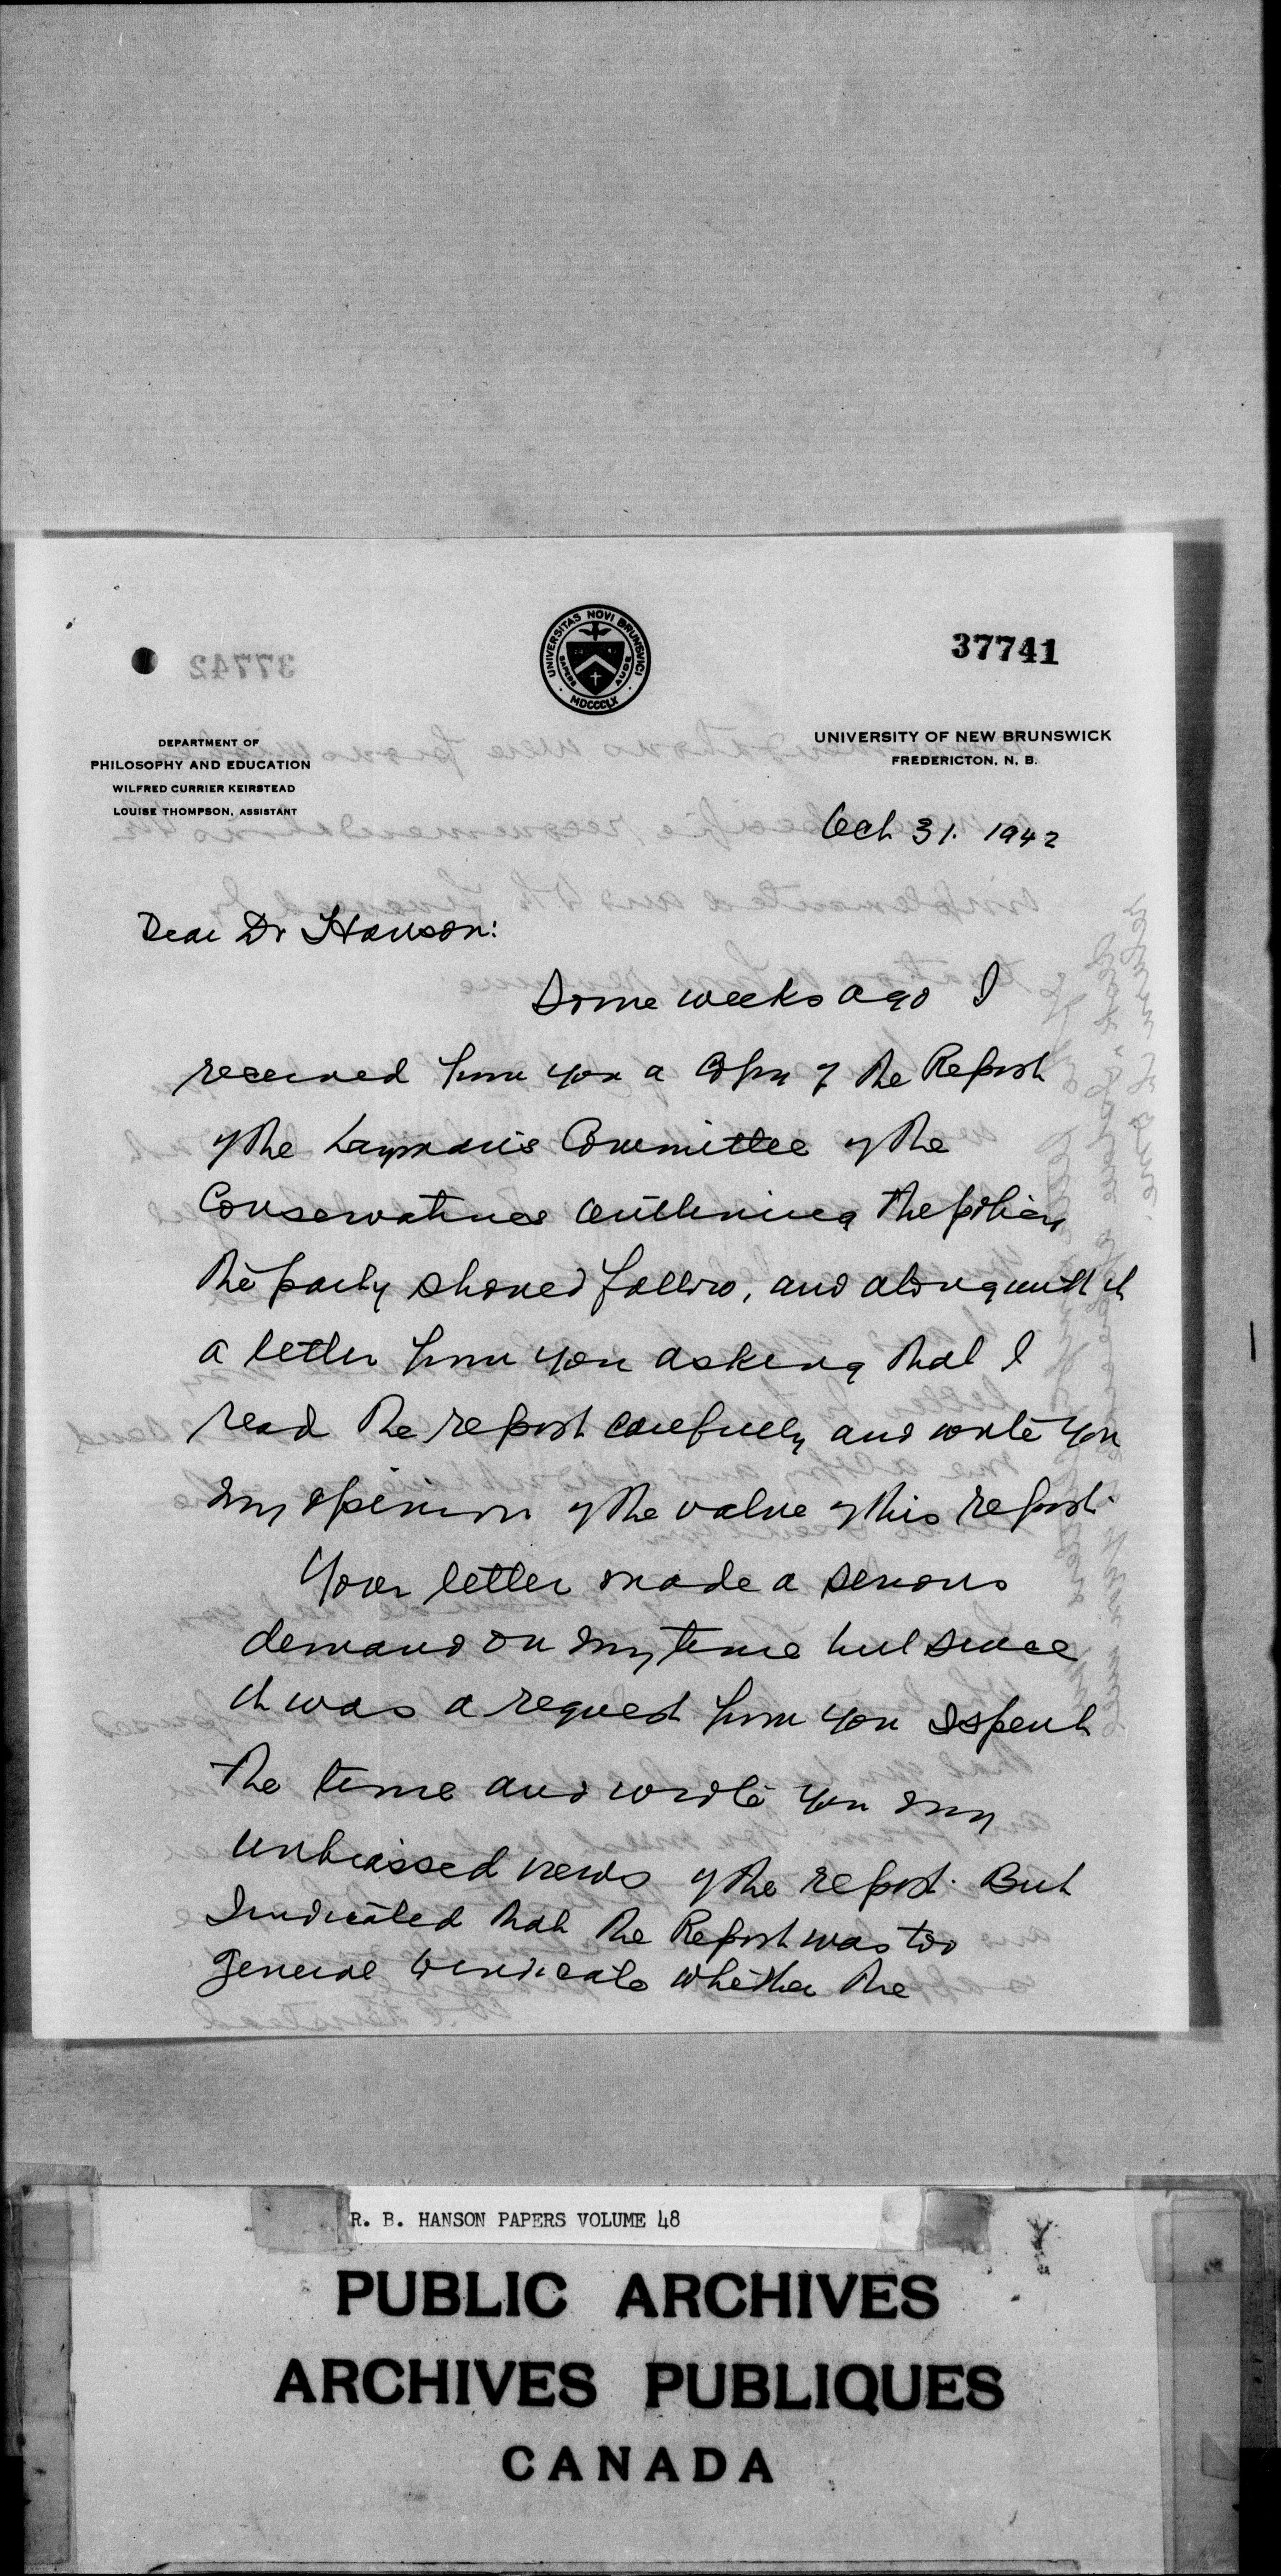 37741
UNIVERSITAS NOVI BRUNSVICI
SAPERE AUDE
MDCCCLX
DEPARTMENT OF
PHILOSOPHY AND EDUCATION
WILFRED CURRIER KEIRSTEAD
LOUISE THOMPSON, ASSISTANT
UNIVERSITY OF NEW BRUNSWICK
FREDERICTON, N. B.
Oct 31. 1942
Dear Dr Hanson:
Some weeks ago I
received from you a copy of the Report
of the Layman's Committee of the
Conservatives outlining the policy
the party should follow, and along with it
a letter from you asking that I
read the report carefully and write you
my opinion of the value of this report.
Your letter made a serious
demand on my time but since
it was a request from you I spent
the time and wrote you my
unbiassed views of the report. But
I indicated that the Report was too
general to indicate whether the
R. B. HANSON PAPERS VOLUME 48
PUBLIC ARCHIVES
ARCHIVES PUBLIQUES
CANADA